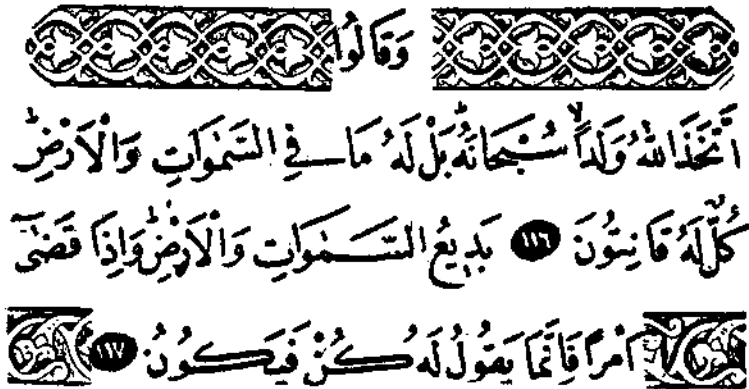 وَقَالُوا
اتَّخَذَ اللّٰهُ وَلَدًاۙ سُبْحَانَهُۜ بَلْ لَهُ مَا فِي السَّمٰوَاتِ وَالْاَرْضِۜ
كُلٌّ لَهُ قَانِتُونَ ﴿١١٦﴾ بَدِيعُ السَّمٰوَاتِ وَالْاَرْضِۜ وَاِذَا قَضٰىٓ
اَمْرًا فَاِنَّمَا يَقُولُ لَهُ كُنْ فَيَكُونُ ﴿١١٧﴾